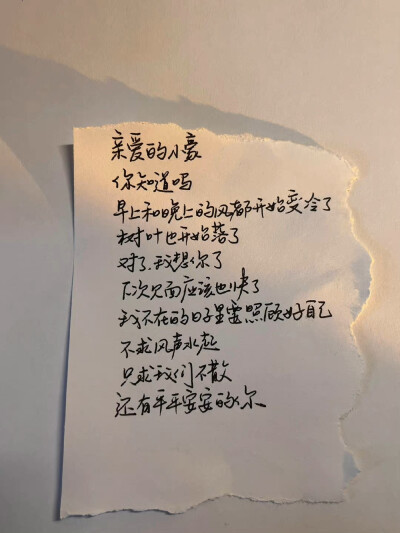 亲爱的小豪
你知道吗
早上和晚上的风都开始变冷了
树叶也开始落了
对了.我想你了
下次见面应该也快了
我不在的日子里要照顾好自己
不求风声水起
只求我们不散
还有平平安安的你